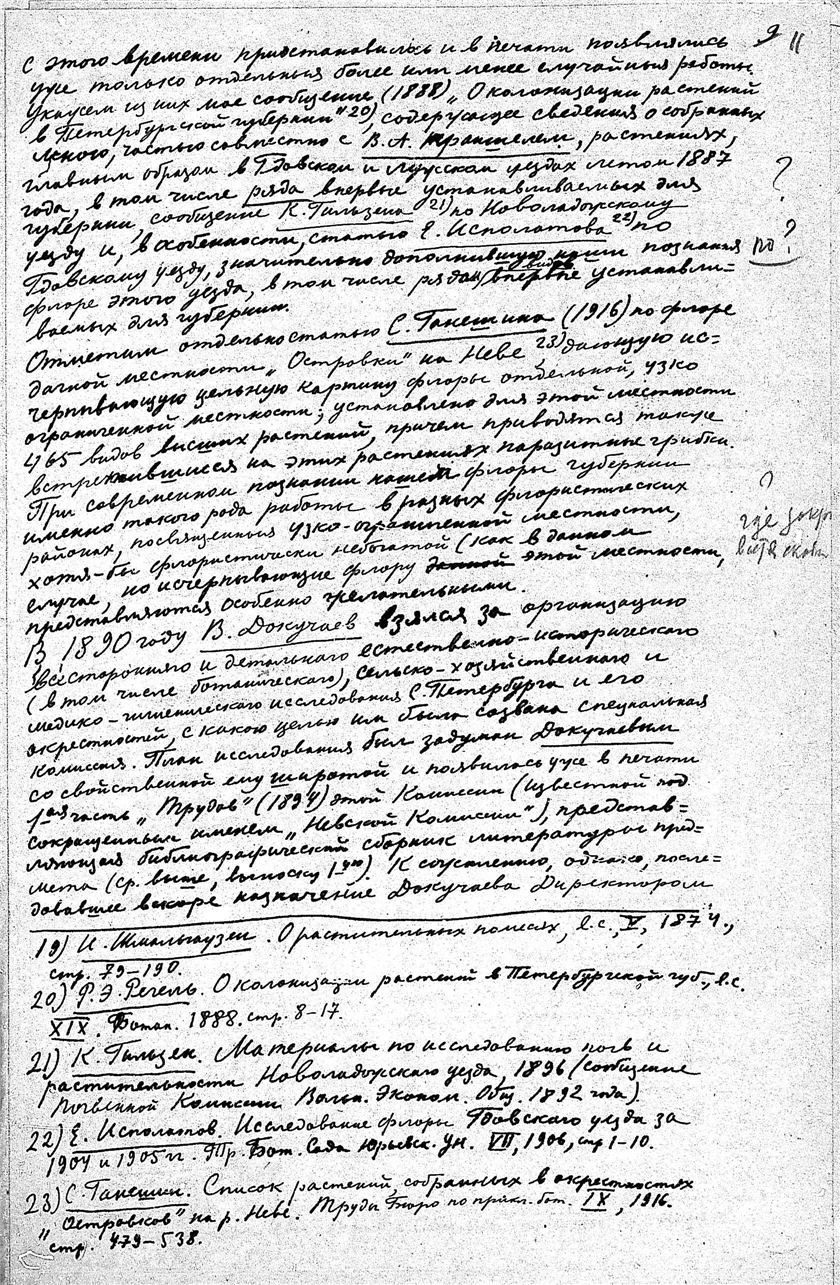 9 11
с этого времени приостановилось и в печати появлялись
уже только отдельныя более или менее случайныя работы.
Укажем из них мое сообщение (1888) „О колонизации растений
в Петербургской губернии" 20), содержащее сведения о собранных
мною, частью совместно с В. А. Траншелем, растениях,
главным образом в Гдовском и Лужском уездах летом 1887
года, в том числе ряда впервые устанавливаемых для
губернии, сообщение К. Гильзена 21) по Новоладожскому
уезду и, в особенности, статью Е. Исполатова 22) по
Гдовскому уезду, значительно дополнившую наши познания по
флоре этого уезда, в том числе рядом видов впервые устанавли=
ваемых для губернии.
Отметим отдельно статью С. Ганешина (1916) по флоре
дачной местности „Островки" на Неве 23), дающую ис=
черпывающую цельную картину флоры отдельной, узко
ограниченной местности; установлено для этой местности
465 видов высших растений, причем приводятся также
встретившиеся на этих растениях паразитные грибки.
При современном познании нашей флоры губернии
именно такого рода работы в разных флористических
районах, посвященныя узко-ограниченной местности,
хотя-бы флористически небогатой (как в данном
случае, но исчерпывающие флору данной этой местности,
представляются особенно желательными.
В 1890 году В. Докучаев взялся за организацию
всестороннего и детальнаго естественно-историческаго
(в том числе ботаническаго), сельско-хозяйственнаго и
медико-гигиеническаго исследования С. Петербурга и его
окрестностей, с какою целью им была созвана специальная
комиссия. План исследования был задуман Докучаевым
со свойственной ему широтой и появилась уже в печати
1ая часть „Трудов" (1894) этой Комиссии (известной под
сокращенным именем „Невской Комиссии"), представ=
ляющая библиографический сборник литературы пред=
мета (ср. выше, выноску 1-ую). К сожалению, однако, после=
довавшее вскоре назначение Докучаева Директором
19) И. Шмальгаузен. О растительных помесях, l.c., V, 1874.,
стр. 79-190.
20) Р. Э. Регель. О колонизации растений в Петербургской губ., l.c.
XIX. Ботан. 1888. стр. 8-17.
21) К. Гильзен. Материалы по исследованию почв и
растительности Новоладожскаго уезда, 1896 (сообщение
Почвенной Комиссии Вольн. Эконом. Общ. 1892 года).
22) Е. Исполатов. Исследование флоры Гдовскаго уезда за
1904 и 1905 гг. Тр. Бот. Сада Юрьевск. Ун. VII, 1906, стр 1-10.
23) С. Ганешин. Список растений собранных в окрестностях
„Островков" на р. Неве. Труды Бюро по прикл. бот. IX, 1916.
стр. 479-538.
?
?
?
где